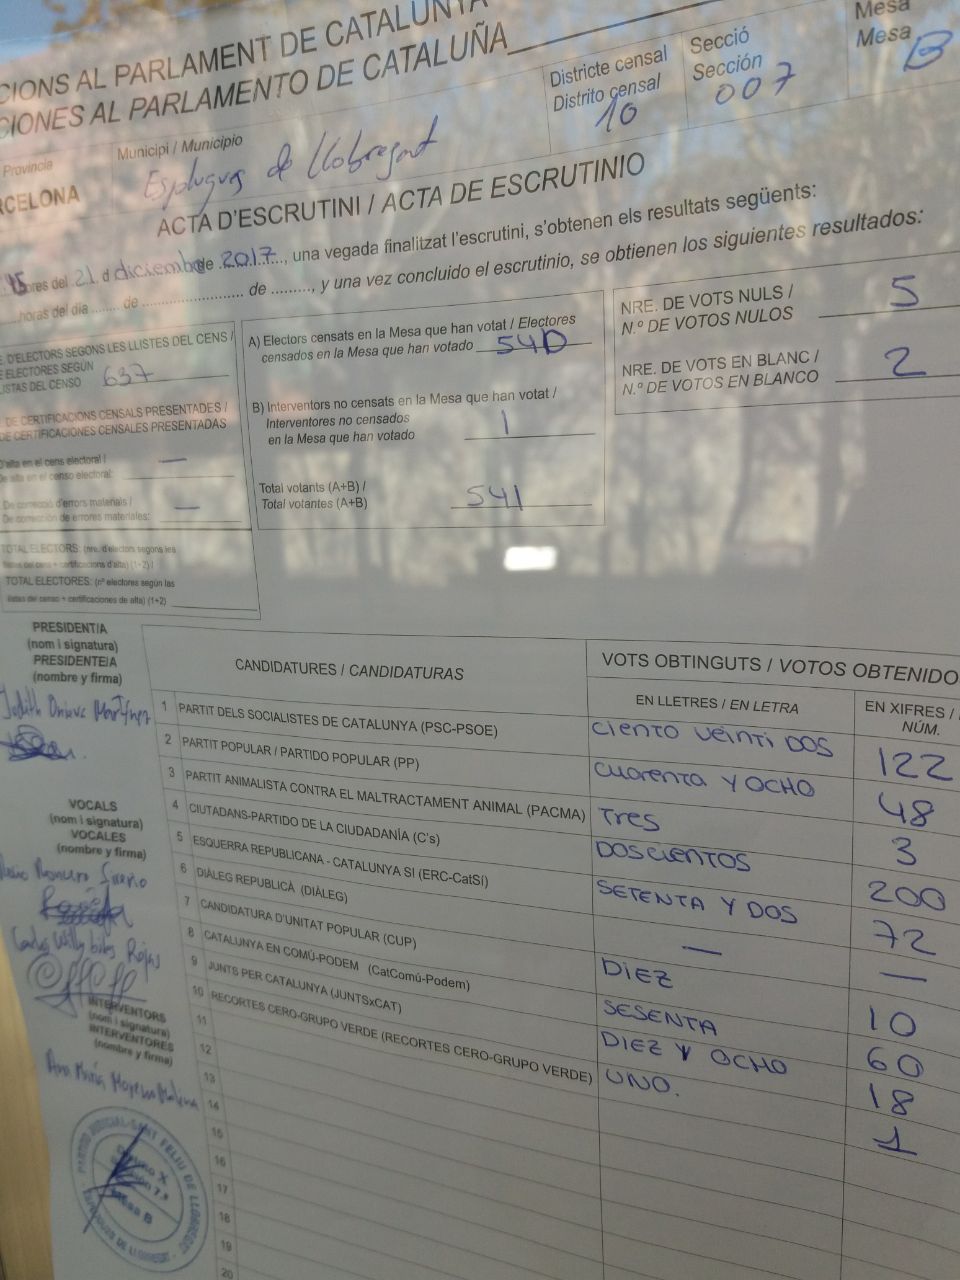 CIONS AL PARLAMENT DE CATALUNYA
CIONES AL PARLAMENTO DE CATALUÑA
Provincia
RCELONA
Municipi / Municipio
Esplugues de Llobregat
Districte censal
Distrito censal
10
Secció
Sección
007
Mesa
Mesa
B
ACTA D'ESCRUTINI / ACTA DE ESCRUTINIO
ores del 21 d diciembre de 2017, una vegada finalitzat l'escrutini, s'obtenen els resultats següents:
horas del día ........ de .......................... de ........., y una vez concluido el escrutinio, se obtienen los siguientes resultados:
E. D'ELECTORS SEGONS LES LLISTES DEL CENS /
E ELECTORES SEGÚN
LISTAS DEL CENSO 637
DE CERTIFICACIONS CENSALS PRESENTADES /
DE CERTIFICACIONES CENSALES PRESENTADAS
D'alta en el cens electoral /
De alta en el censo electoral: —
De correcció d'errors materials /
De corrección de errores materiales: —
TOTAL ELECTORS: (nre. d'electors segons les
llistes del cens + certificacions d'alta) (1+2) /
TOTAL ELECTORES: (nº electores según las
listas del censo + certificaciones de alta) (1+2)
A) Electors censats en la Mesa que han votat / Electores
censados en la Mesa que han votado 540
B) Interventors no censats en la Mesa que han votat /
Interventores no censados
en la Mesa que han votado 1
Total votants (A+B) /
Total votantes (A+B) 541
NRE. DE VOTS NULS /
N.º DE VOTOS NULOS 5
NRE. DE VOTS EN BLANC /
N.º DE VOTOS EN BLANCO 2
PRESIDENT/A
(nom i signatura)
PRESIDENTE/A
(nombre y firma)
Judith
VOCALS
(nom i signatura)
VOCALES
(nombre y firma)
Romero
Carlos Willy
Rojas
INTERVENTORS
(nom i signatura)
INTERVENTORES
(nombre y firma)
Ana María Moyano
CANDIDATURES / CANDIDATURAS
VOTS OBTINGUTS / VOTOS OBTENIDO
EN LLETRES / EN LETRA
EN XIFRES /
NÚM.
1 PARTIT DELS SOCIALISTES DE CATALUNYA (PSC-PSOE) CIENTO VEINTI DOS 122
2 PARTIT POPULAR / PARTIDO POPULAR (PP) CUARENTA Y OCHO 48
3 PARTIT ANIMALISTA CONTRA EL MALTRACTAMENT ANIMAL (PACMA) TRES 3
4 CIUTADANS-PARTIDO DE LA CIUDADANÍA (C's) DOSCIENTOS 200
5 ESQUERRA REPUBLICANA - CATALUNYA SI (ERC-CatSí) SETENTA Y DOS 72
6 DIÀLEG REPUBLICÀ (DIÀLEG) — —
7 CANDIDATURA D'UNITAT POPULAR (CUP) DIEZ 10
8 CATALUNYA EN COMÚ-PODEM (CatComú-Podem) SESENTA 60
9 JUNTS PER CATALUNYA (JUNTSxCAT) DIEZ Y OCHO 18
10 RECORTES CERO-GRUPO VERDE (RECORTES CERO-GRUPO VERDE) UNO. 1
11
12
13
14
15
16
17
18
19
20
PARTIDO JUDICIAL-SANT FELIU DE LLOBREGAT
ESPLUGUES DE LLOBREGAT
Mesa B